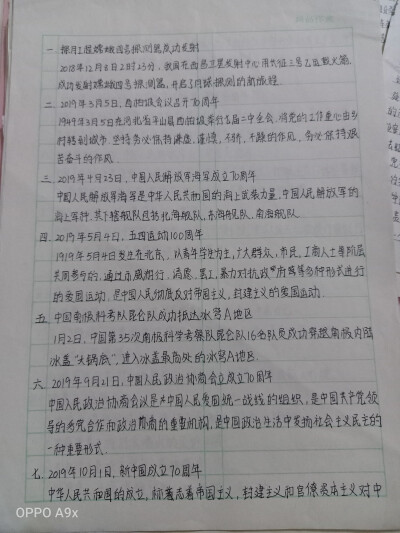 一 探月工程嫦娥四号探测器成功发射
2018年12月8日2时23分,我国在西昌卫星发射中心用长征三号乙运载火箭
成功发射嫦娥四号探测器,开启了月球探测的新旅程.
二 2019年3月5日,西柏坡会议召开70周年
1949年3月5日在河北省平山县西柏坡举行七届二中全会,将党的工作重心由乡
村转到城市.坚持务必保持谦虚,谨慎,不骄,不躁的作风,务必保持艰
苦奋斗的作风
三 2019年4月23日,中国人民解放军海军成立70周年
中国人民解放军海军是中华人民共和国的海上武装力量,中国人民解放军的
海上军种,其下辖舰队包括北海舰队,东海舰队,南海舰队.
四 2019年5月4日,五四运动100周年
1919年5月4日发生在北京,以青年学生为主,广大群众,市民,工商人士等阶层
共同参与的,通过示威游行,请愿,罢工,暴力对抗政府等多种形式进行
的爱国运动.是中国人民彻底反对帝国主义,封建主义的爱国运动
五 中国南极科考队昆仑队成功抵达冰穹A地区
1月2日,中国第35次南极科学考察队昆仑队16名队员成功穿越南极内陆
冰盖"大锅底",进入冰盖最高处的冰穹A地区.
六 2019年9月21日,中国人民政治协商会立成立70周年
中国人民政治协商会议是中国人民爱国统一战线的组织,是中国共产党领
导的多党合作和政治协商的重要机构,是中国政治生活中发扬社会主义民主的
一种重要形式.
七 2019年10月1日,新中国成立70周年
中华人民共和国的成立,标志着帝国主义,封建主义和官僚资本主义对中
OPPO A9x